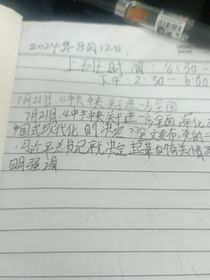 2024年8月12日
上班时间:6:30-
下午:2:30-6:00
7月21日《中共中央关于进一步全面
7月21日《中共中央关于进一步全面深化
中国式现代化的决定》全文发布,党的二
,习近平总书记就决定起草的有关情况
明强调